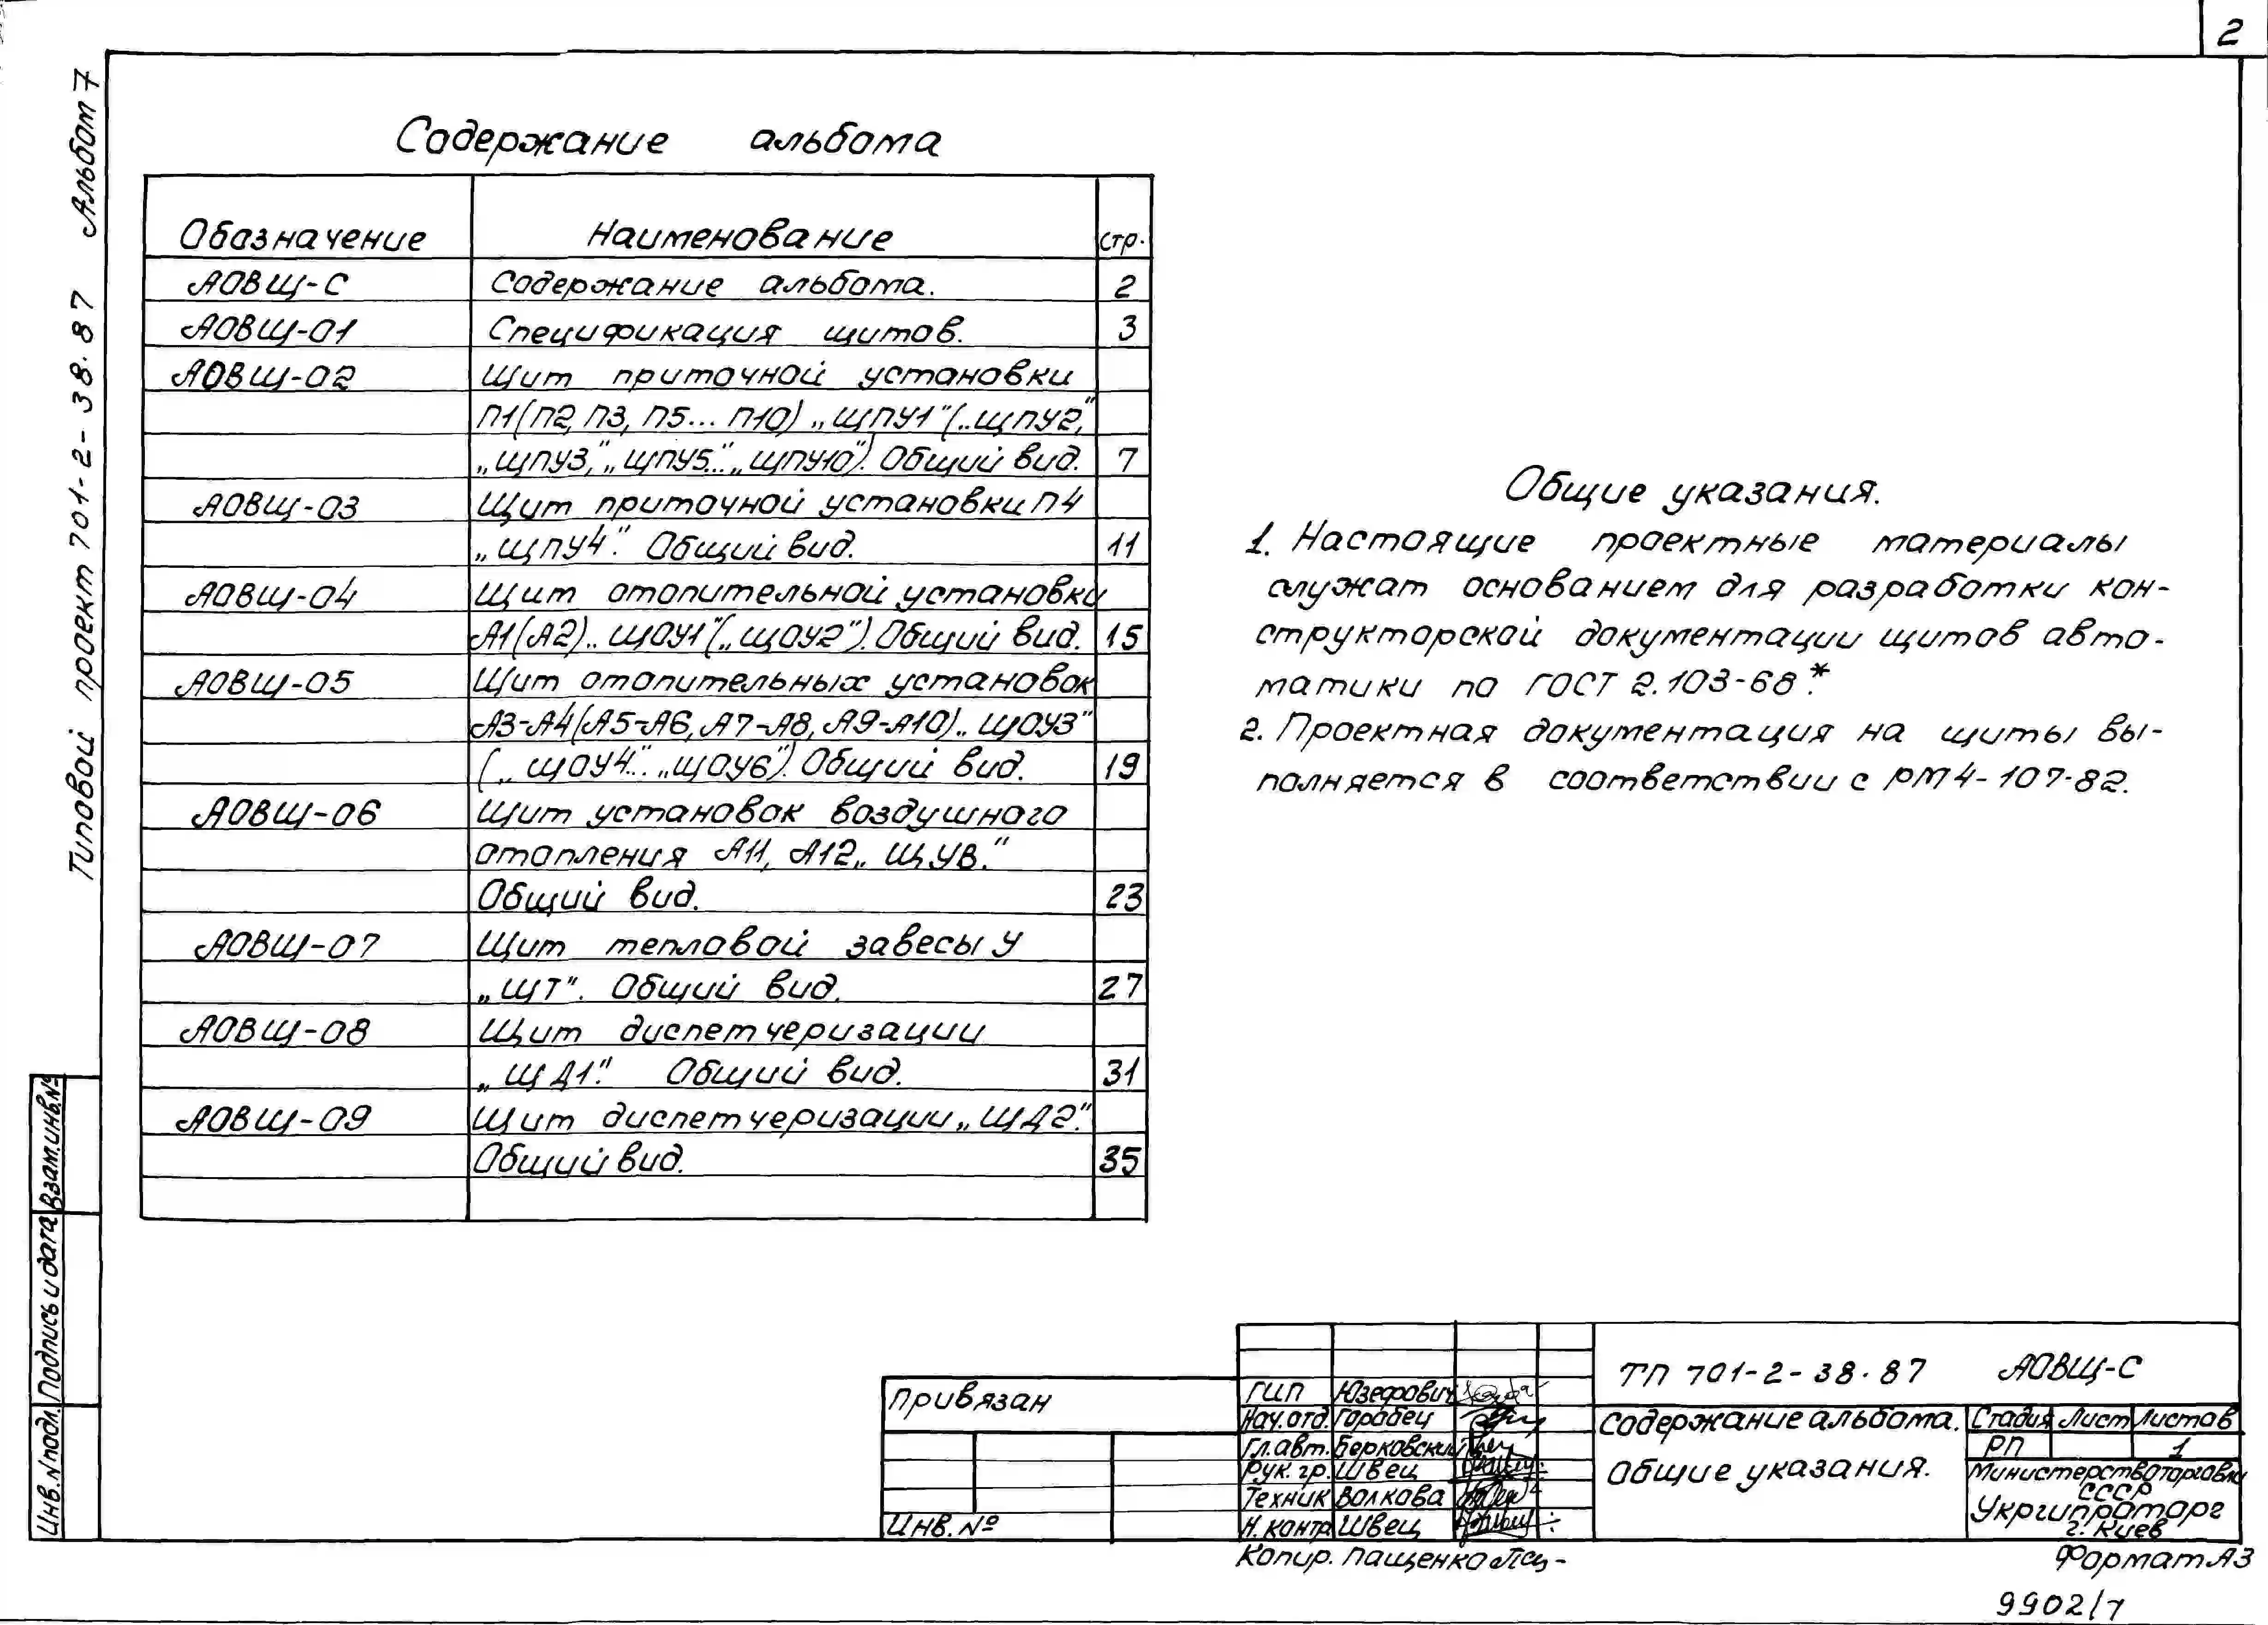 2
Типовой проект 701-2-38.87 Альбом 7
Содержание альбома
Обозначение Наименование стр.
АОВЩ-С Содержание альбома. 2
АОВЩ-01 Спецификация щитов. 3
АОВЩ-02 Щит приточной установки
П1(П2, П3, П5... П10) „ЩПУ1" („ЩПУ2",
„ЩПУ3", „ЩПУ5"...„ЩПУ10"). Общий вид. 7
АОВЩ-03 Щит приточной установки П4
„ЩПУ4". Общий вид. 11
АОВЩ-04 Щит отопительной установки
А1(А2) „ЩОУ1" („ЩОУ2"). Общий вид. 15
АОВЩ-05 Щит отопительных установок
А3-А4(А5-А6, А7-А8, А9-А10) „ЩОУ3"
(„ЩОУ4"...„ЩОУ6"). Общий вид. 19
АОВЩ-06 Щит установок воздушного
отопления А11, А12 „ЩУВ."
Общий вид. 23
АОВЩ-07 Щит тепловой завесы У
„ЩТ". Общий вид. 27
АОВЩ-08 Щит диспетчеризации
„ЩД1". Общий вид. 31
АОВЩ-09 Щит диспетчеризации „ЩД2".
Общий вид. 35
Общие указания.
1. Настоящие проектные материалы
служат основанием для разработки кон-
структорской документации щитов авто-
матики по ГОСТ 2.103-68*.
2. Проектная документация на щиты вы-
полняется в соответствии с РМ4-107-82.
Взам.инв.№
Подпись и дата
Инв.N подл.
Привязан
Инв. №
ГИП Юзефович
Нач.отд. Горабец
Гл.авт. Берковский
Рук. гр. Швец
Техник Волкова
Н.контр Швец
ТП 701-2-38.87 АОВЩ-С
Содержание альбома.
Общие указания.
Стадия Лист Листов
РП 1
Министерство торговли
СССР
Укргипроторг
г. Киев
Копир. Пащенко
Формат А3
9902/7